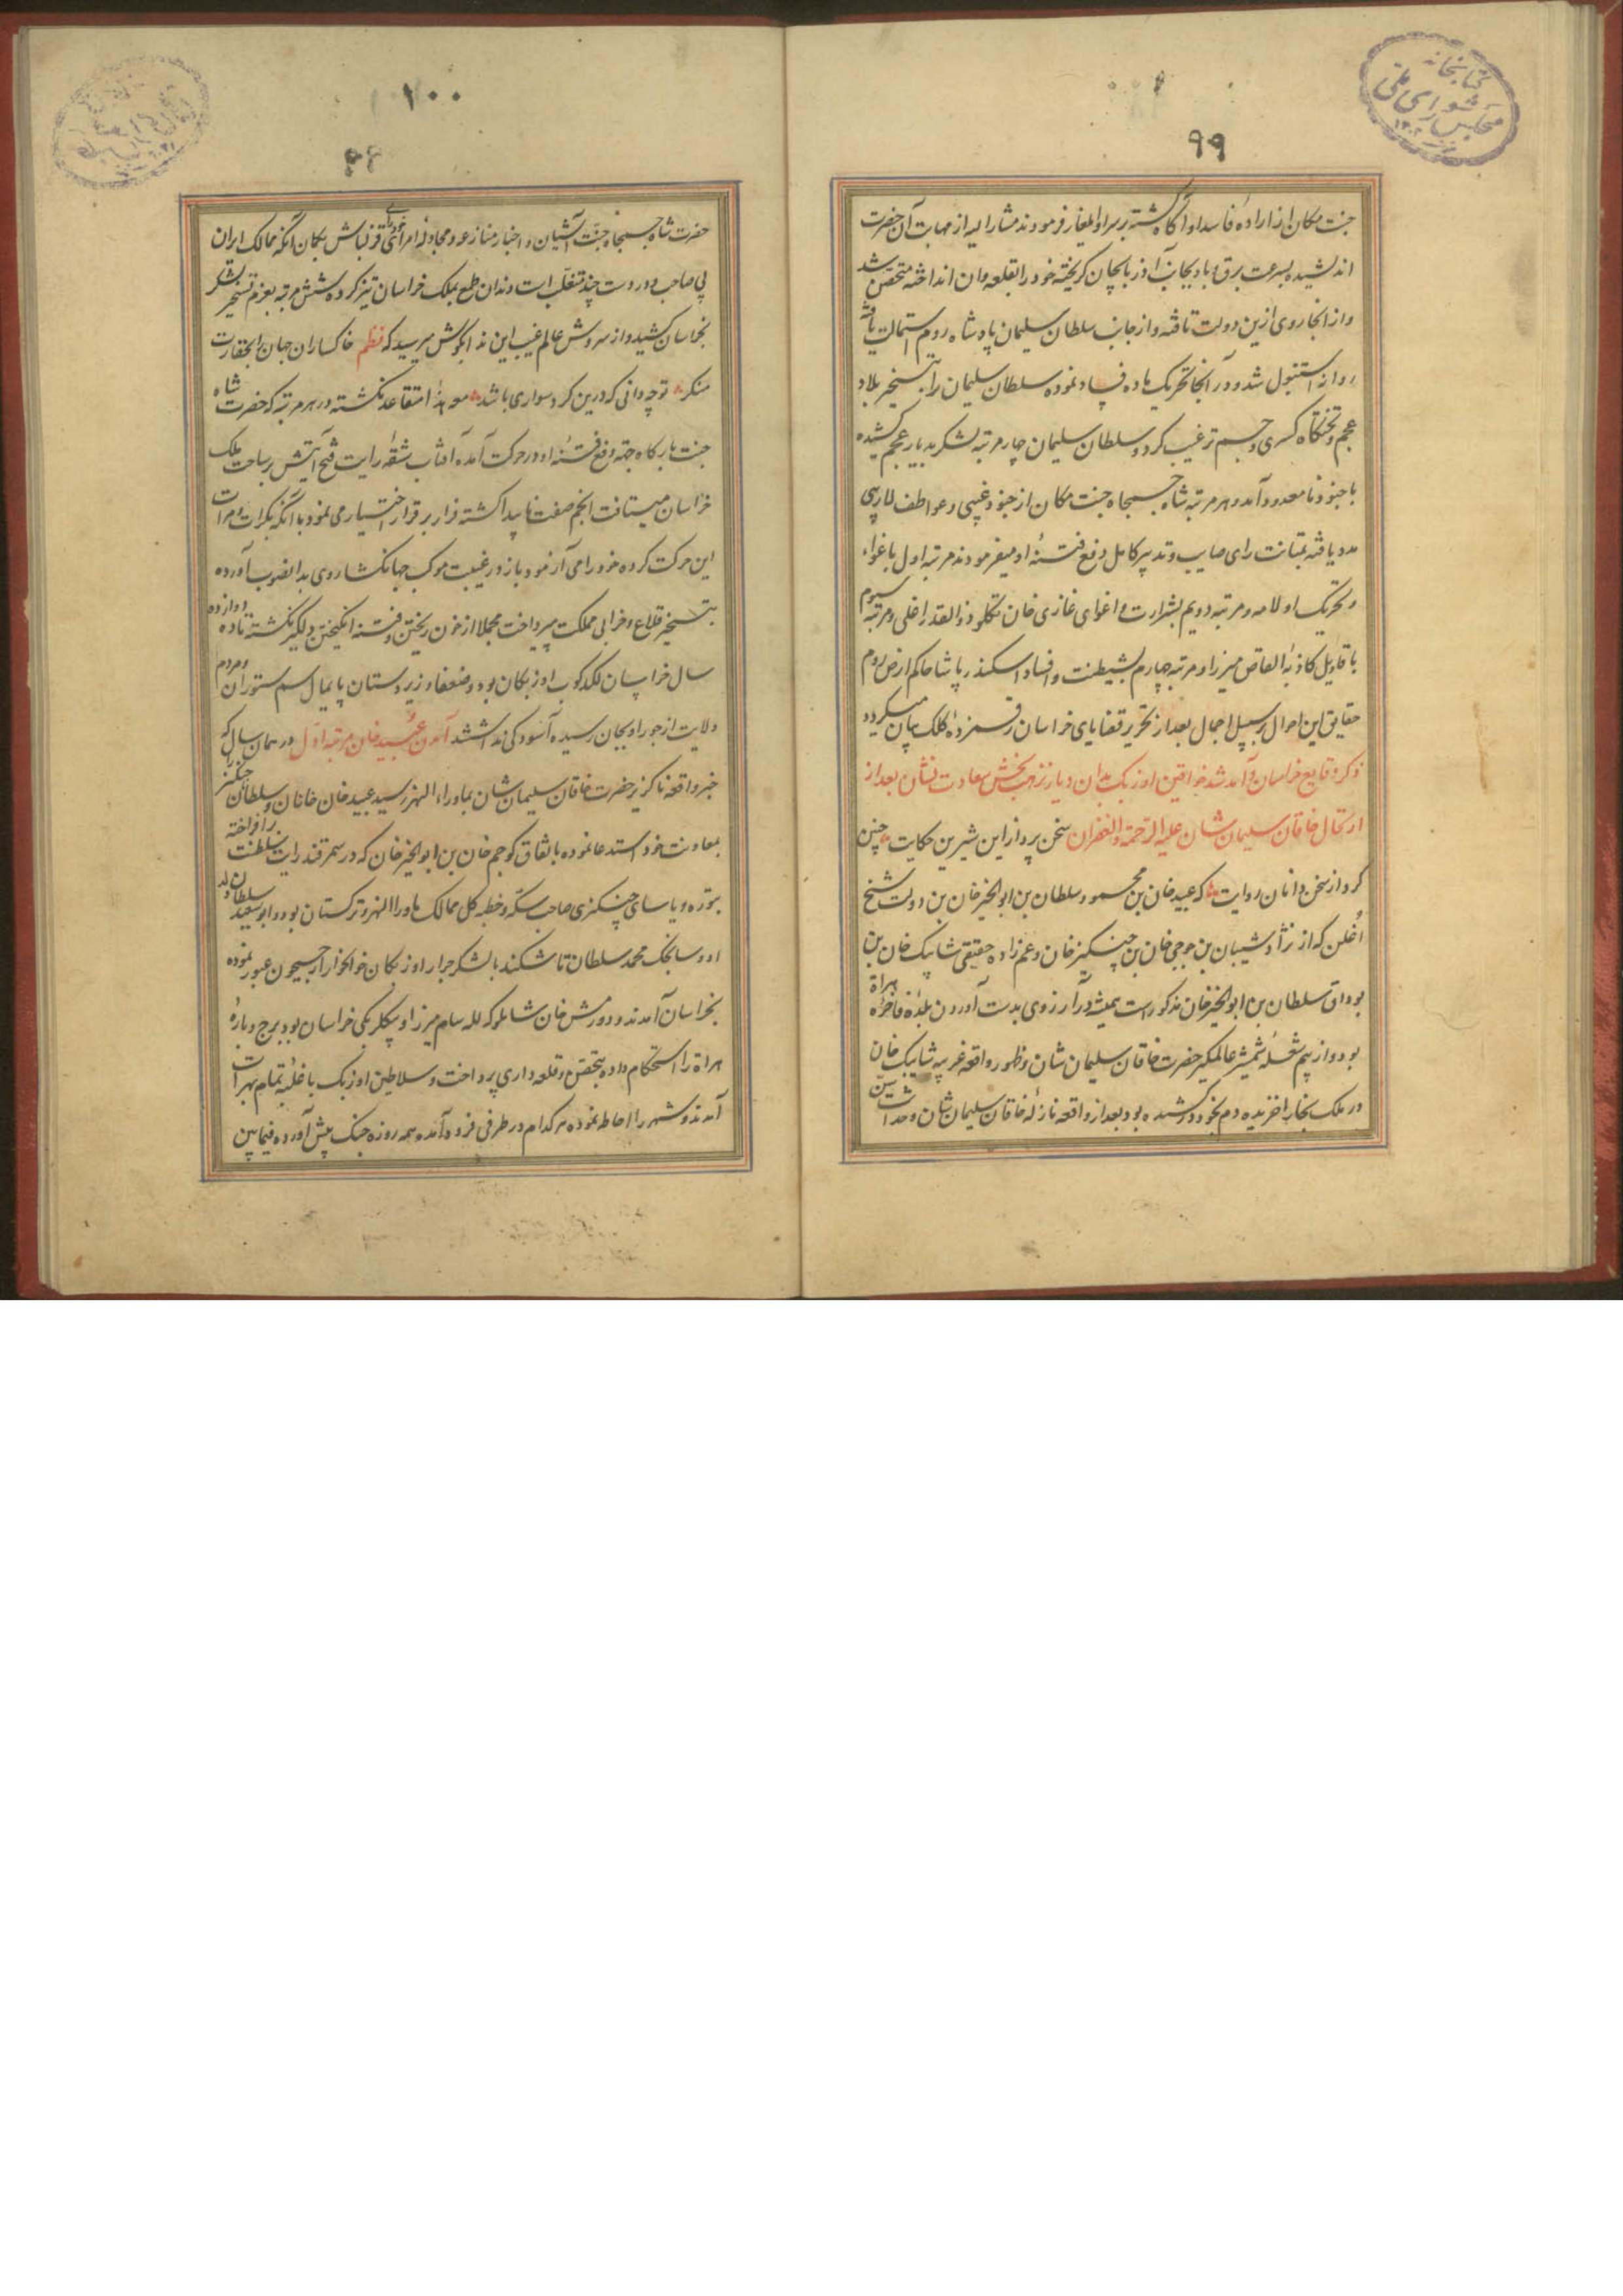 کتابخانه
مجلس شورای ملی
۹۹
جنت مکان از اراده فاسد او آگاه گشته بر سر او ایلغار فرمودند مشار الیه از مهابت آن حضرت
اندیشیده بسرعت برق و باد بجانب آذربایجان گریخته خود را بقلعه وان انداخته متحصن شد
و از آنجا روی ازین دولت تافته و از جانب سلطان سلیمان پادشاه روم استمالت یافته
روانه استنبول شد و در آنجا تحریک ماده فساد نموده سلطان سلیمان را بتسخیر بلاد
عجم و تختگاه کسری و جم ترغیب کرد و سلطان سلیمان چهار مرتبه لشکر بدیار عجم کشیده
با جنود نامعدود آمد و هر مرتبه شاه جمجاه جنت مکان از جنود غیبی و عواطف لاریبی
مدد یافته بمتانت رای صایب و تدبیر کامل دفع فتنه او میفرمودند مرتبه اول باغواء
و تحریک اولامه و مرتبه دویم بشرارت و اغوای غازی خان تکلو ذوالقدر اغلی و مرتبه سیوم
باقاویل کاذبه القاص میرزا و مرتبه چهارم بشیطنت و افساد اسکندر پاشا حاکم ارض روم
حقایق این احوال بر سبیل اجمال بعد از تحریر قضایای خراسان رقمزده کلک بیان میگردد
ذکر وقایع خراسان و آمد شد خواقین اوزبک بدان دیار نزهت بخش سعادت نشان بعد از
ارتحال خاقان سلیمان شان علیه الرحمة و الغفران سخن پرداز این شیرین حکایت چنین
کرد از سخن دانان روایت که عبید خان بن محمود سلطان بن ابوالخیر خان بن دولت شیخ
اغلن که از نژاد شیبان بن جوجی خان بن چنگیز خان و عم زاده حقیقی شاهی بیک خان بن
بوداق سلطان بن ابوالخیر خان مذکور است همیشه در آرزوی بدست آوردن بلده فاخره هراة
بود و از بیم شعله شمشیر عالمگیر حضرت خاقان سلیمان شان و ظهور واقعه غریبه شاهی بیک خان
در ملک بخارا خزیده دم بخود در کشیده بود بعد از واقعه نازله خاقان سلیمان شان و حداثت سن
۱۰۰
حضرت شاه جمجاه جنت آشیان و اخبار منازعه و مجادله امرای قزلباش بگمان آنکه ممالک ایران
بی صاحب و در دست چند متغلب است دندان طمع بملک خراسان تیز کرده شش مرتبه بعزم تسخیر لشکر
بخراسان کشید و از سروش عالم غیب این ندا بگوش میرسید که نظم خاکساران جهان را بحقارت
منگر توچه دانی که درین گرد سواری باشد معهذا متقاعد نگشته در هر مرتبه که حضرت شاه
جنت بارگاه جهة دفع فتنه او در حرکت آمده آفتاب شقه رایت فتح آیتش بر ساحت ملک
خراسان میتافت انجم صفت ناپیدا گشته فرار بر قرار اختیار می نمود با آنکه بکرات و مرات
این حرکت کرده خود را می آزمود باز در غیبت موکب جهانگشا روی بدانصوب آورده
بتسخیر قلاع و خرابی مملکت میپرداخت مجملا از خون ریختن و فتنه انگیختن دلگیر نگشته تا ده دوازده
سال خراسان لگدکوب اوزبکان بود و ضعفا و زیردستان پایمال سم ستوران و مردم
ولایت از جور او بجان رسیده آسودگی نداشتند آمدن عبید خان مرتبه اول در همان سال که
خبر واقعه ناگزیر حضرت خاقان سلیمان شان بماوراء النهر رسید عبید خان خانان و سلطانان چنگیز را
بمعاونت خود استدعا نموده باتفاق کوچم خان بن ابوالخیر خان که در سمرقند رایت سلطنت برافراخته
بتوره و یاسای چنگیزی صاحب سکه و خطبه کل ممالک ماوراالنهر و ترکستان بود و ابوسعید سلطان ولد
او و سونجک محمد سلطان تاشکند با لشکر جرار اوزبکان خونخوار از جیحون عبور نموده
بخراسان آمدند و دورمش خان شاملو که لله سام میرزا و بیگلربیگی خراسان بود برج و باره
هراة را استحکام داده بتحصن و قلعه داری پرداخت و سلاطین اوزبک با غلبه تمام بهرات
آمدند و شهر را احاطه نموده هر کدام در طرفی فرود آمده همه روزه جنگ پیش آورده فیمابین